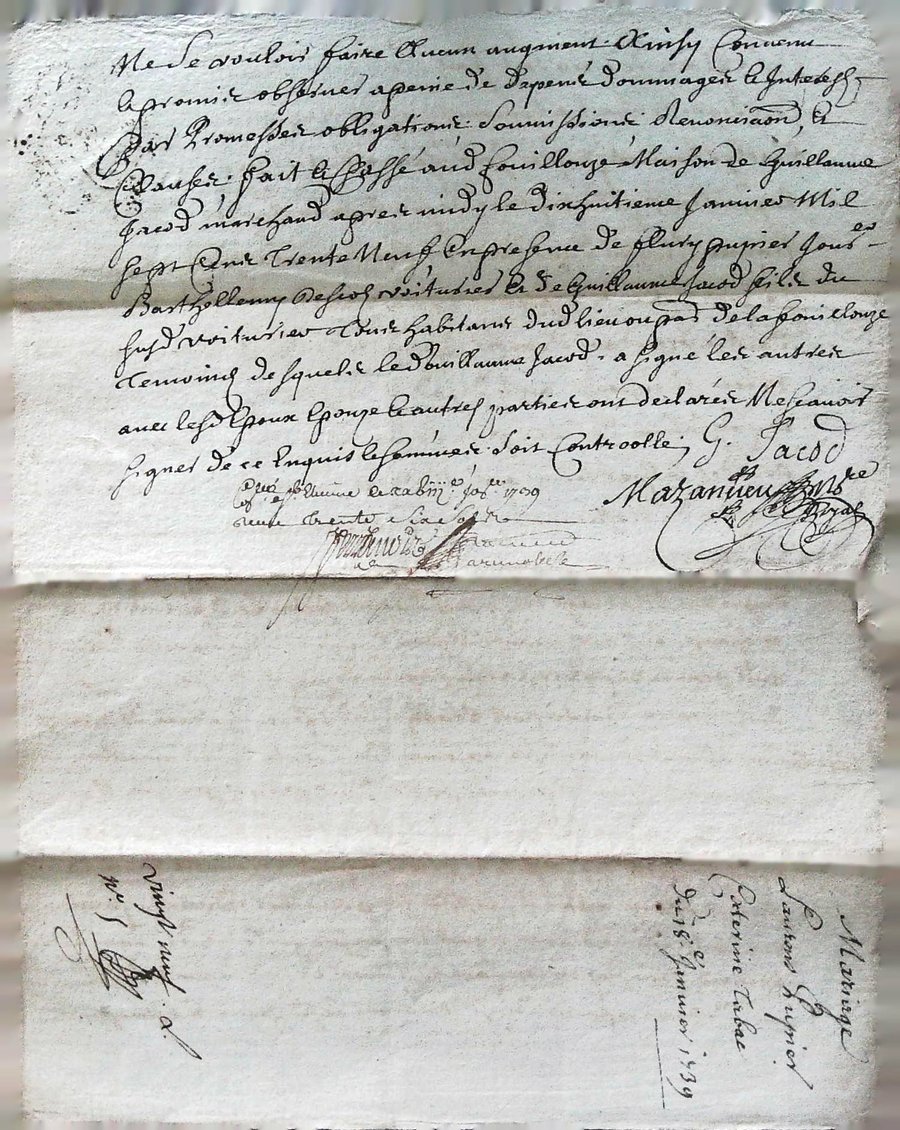 Ne se vouloir faire aucun augment. Ainsy Convenu
et promis observer a peine de depens dommages et Interest
Par Promesses obligations Soumissions Renonciaon et
Clauses. fait et Passé aud fouillouze Maison de Guillaume
Jacod marchand apres midy le dixhuitieme Janvier Mil
sept Cens Trente Neuf En presence de fleury pupier
Barthellemy voiturier et de Guillaume Jacod fils du
susd voiturier Tous habitans dud lieu ou par de la fouillouze
Temoins desquels led Guillaume Jacod a signé les autres
avec lesd Epoux Epouze et autres parties ont declarés Ne scavoir
signer de ce Enquis et sommés. soit Controollé; G. Jacod
Mazandieu Nre Royal
Etienne le 1739
Trente Six sols
vingt neuf
No. 5
Mariage
Laurens Pupier
&
Caterine Tabac
du 18e Janvier 1739